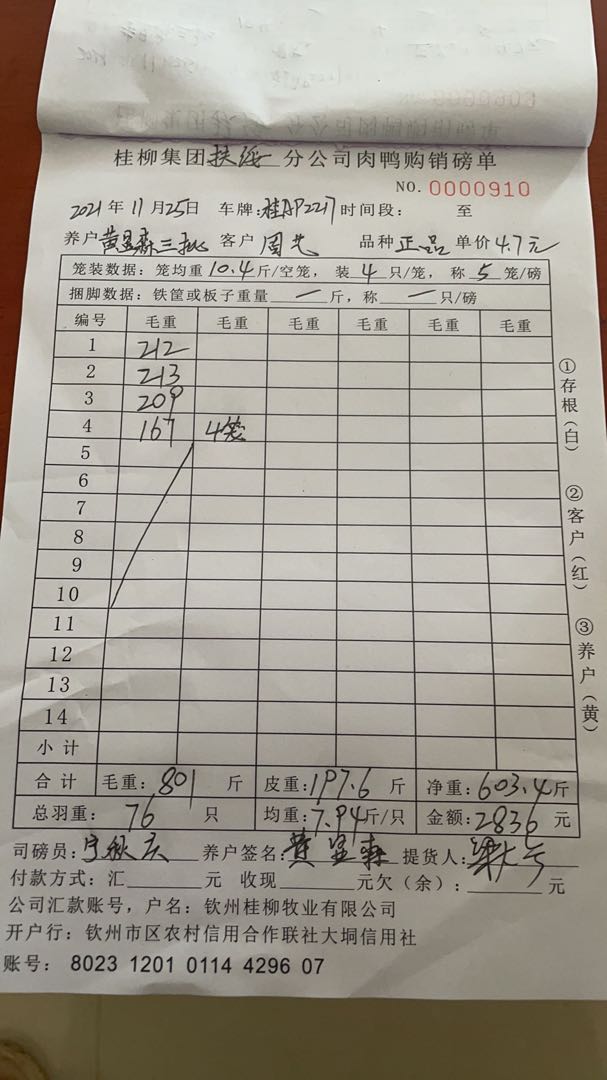 桂柳集团扶绥分公司肉鸭购销磅单
NO. 0000910
2021年11月25日 车牌:桂AP2217 时间段: 至
养户黄显森三批 客户 周芝 品种 正品 单价 4.7元
笼装数据: 笼均重 10.4 斤/空笼, 装 4 只/笼, 称 5 笼/磅
捆脚数据: 铁筐或板子重量 — 斤, 称 — 只/磅
编号 毛重 毛重 毛重 毛重 毛重 毛重
1 212
2 213
3 209
4 167 4笼
5
6
7
8
9
10
11
12
13
14
小计
合计 毛重: 801 斤 皮重: 197.6 斤 净重: 603.4 斤
总羽重: 76 只 均重: 7.94 斤/只 金额: 2836 元
司磅员: 养户签名: 黄显森 提货人:
付款方式: 汇 元 收现 元欠(余): 元
公司汇款账号, 户名: 钦州桂柳牧业有限公司
开户行: 钦州市区农村信用合作联社大垌信用社
账号: 8023 1201 0114 4296 07
①存根(白)
②客户(红)
③养户(黄)